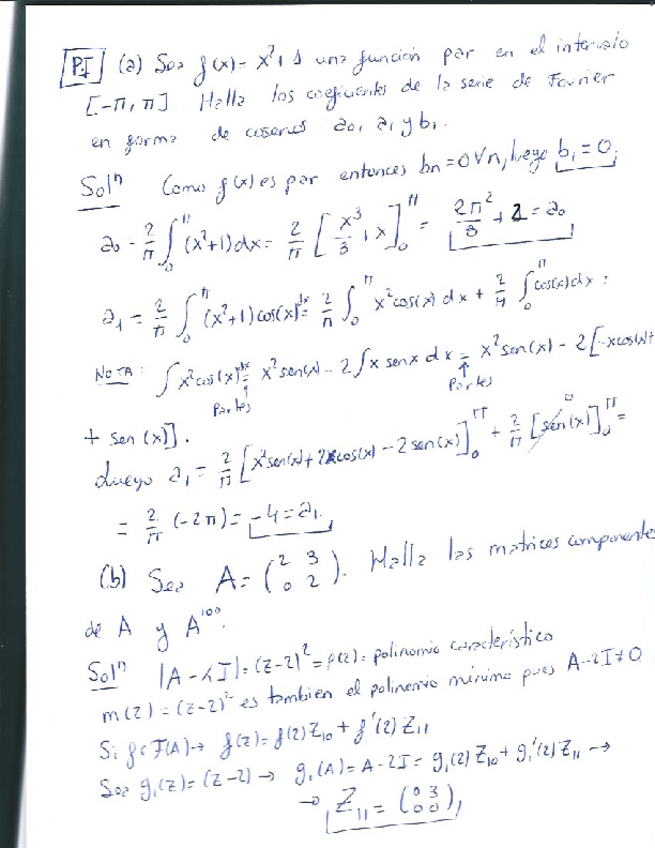 P.I (a) Sea f(x) = x²+1 una función par en el intervalo
[-π, π] Halla los coeficientes de la serie de Fourier
en forma de cosenos a₀, a₁ y b₁.
Solⁿ Como f(x) es par entonces bn = 0 ∀n, luego b₁ = 0.
a₀ = 2/π ∫₀^π (x²+1)dx = 2/π [x³/3 + x]₀^π = 2π²/3 + 2 = a₀
a₁ = 2/π ∫₀^π (x²+1)cos(x)dx = 2/π ∫₀^π x²cos(x)dx + 2/π ∫₀^π cos(x)dx =
NOTA: ∫x²cos(x)dx = x²sen(x) - 2∫x senx dx = x²sen(x) - 2[-xcos(x)+
Partes Partes
+ sen(x)].
Luego a₁ = 2/π [x²sen(x) + 2xcos(x) - 2sen(x)]₀^π + 2/π [sen(x)]₀^π 0 =
= 2/π (-2π) = -4 = a₁.
(b) Sea A = (2 3; 0 2). Halla las matrices componentes
de A y A¹⁰⁰.
Solⁿ |A - λI| = (z-2)² = p(z) = polinomio característico
m(z) = (z-2)² es tambien el polinomio mínimo pues A-2I ≠ 0
Si f∈F(A) → f(z) = f(2)Z₁₀ + f'(2)Z₁₁
Sea g₁(z) = (z-2) → g₁(A) = A-2I = g₁(2)Z₁₀ + g₁'(2)Z₁₁ →
→ Z₁₁ = (0 3; 0 0)